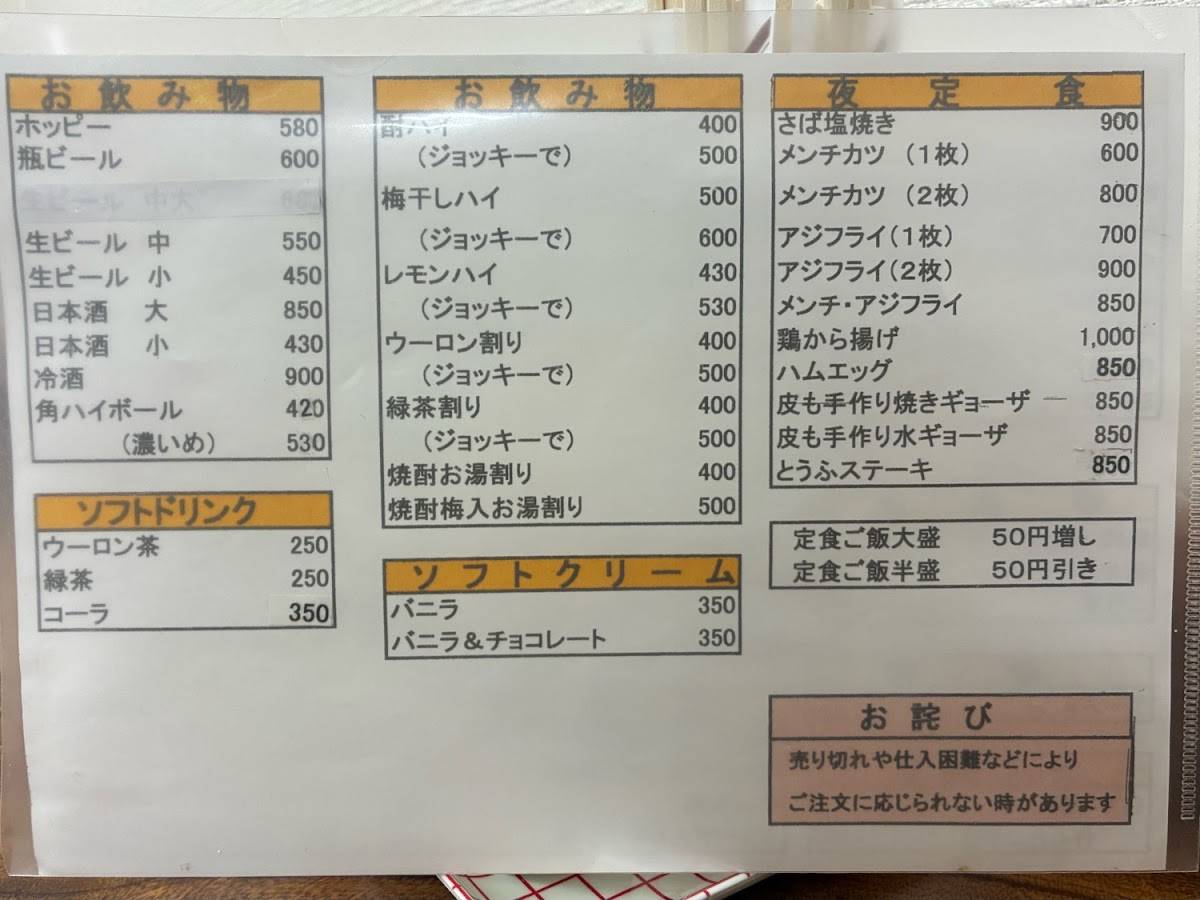 お飲み物
ホッピー 580
瓶ビール 600
生ビール 中大
生ビール 中 550
生ビール 小 450
日本酒 大 850
日本酒 小 430
冷酒 900
角ハイボール 420
(濃いめ) 530
ソフトドリンク
ウーロン茶 250
緑茶 250
コーラ 350
お飲み物
酎ハイ 400
(ジョッキーで) 500
梅干しハイ 500
(ジョッキーで) 600
レモンハイ 430
(ジョッキーで) 530
ウーロン割り 400
(ジョッキーで) 500
緑茶割り 400
(ジョッキーで) 500
焼酎お湯割り 400
焼酎梅入お湯割り 500
ソフトクリーム
バニラ 350
バニラ&チョコレート 350
夜定食
さば塩焼き 900
メンチカツ (1枚) 600
メンチカツ (2枚) 800
アジフライ(1枚) 700
アジフライ(2枚) 900
メンチ・アジフライ 850
鶏から揚げ 1,000
ハムエッグ 850
皮も手作り焼きギョーザ 850
皮も手作り水ギョーザ 850
とうふステーキ 850
定食ご飯大盛 50円増し
定食ご飯半盛 50円引き
お詫び
売り切れや仕入困難などにより
ご注文に応じられない時があります